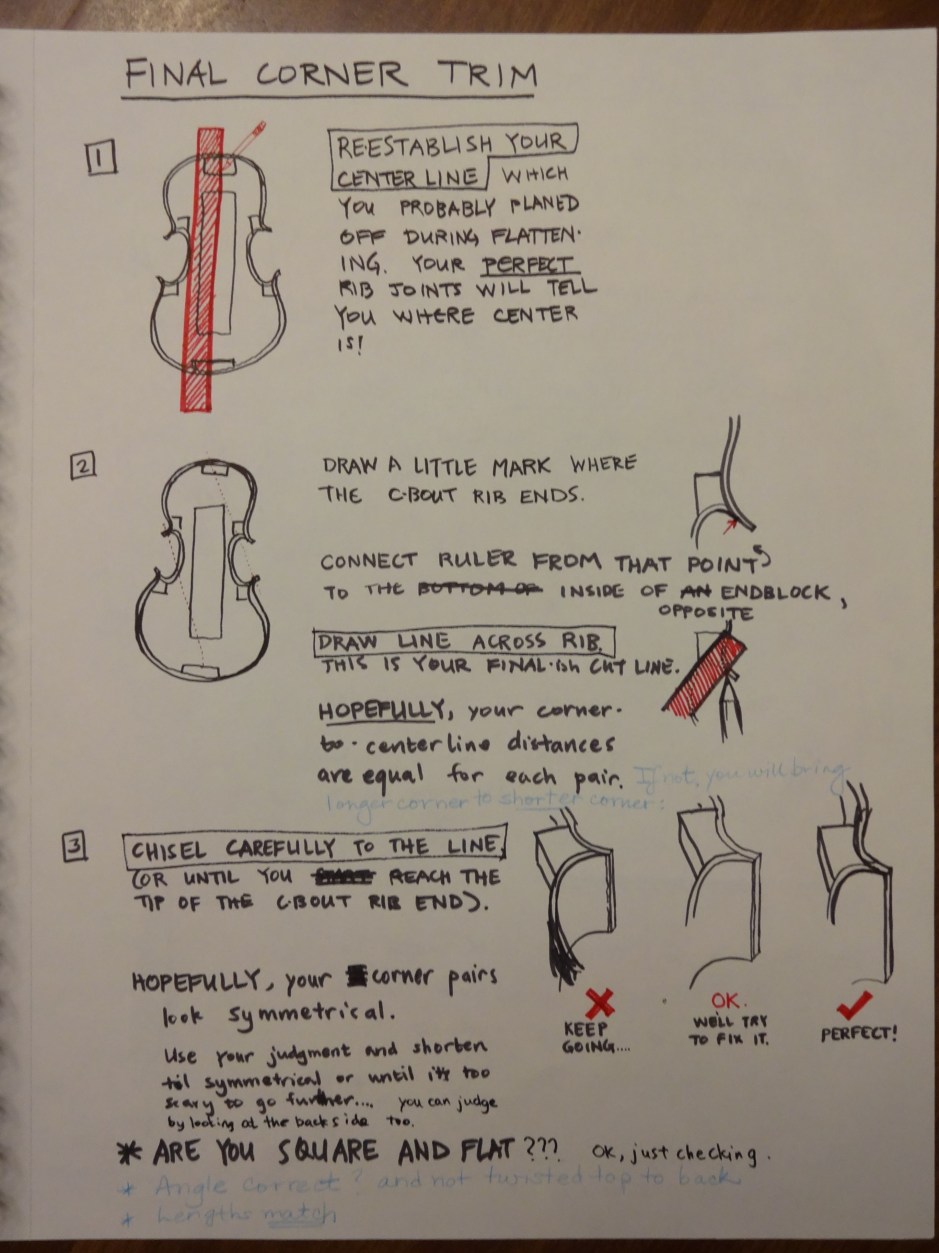 FINAL CORNER TRIM
1
RE-ESTABLISH YOUR
CENTER LINE WHICH
YOU PROBABLY PLANED
OFF DURING FLATTEN-
ING. YOUR PERFECT
RIB JOINTS WILL TELL
YOU WHERE CENTER
IS!
2
DRAW A LITTLE MARK WHERE
THE C-BOUT RIB ENDS.
CONNECT RULER FROM THAT POINT
TO THE BOTTOM OF INSIDE OF AN ENDBLOCK,
OPPOSITE
DRAW LINE ACROSS RIB.
THIS IS YOUR FINAL-ish CUT LINE.
HOPEFULLY, your corner-
to-centerline distances
are equal for each pair. If not, you will bring
longer corner to shorter corner:
3
CHISEL CAREFULLY TO THE LINE,
(OR UNTIL YOU REACH THE
TIP OF THE C-BOUT RIB END).
HOPEFULLY, your corner pairs
look symmetrical.
Use your judgment and shorten
til symmetrical or until it's too
scary to go further.... you can judge
by looking at the backside too.
KEEP
GOING....
OK.
WE'LL TRY
TO FIX IT.
PERFECT!
* ARE YOU SQUARE AND FLAT??? OK, just checking.
* Angle correct? and not twisted top to back
* Lengths match